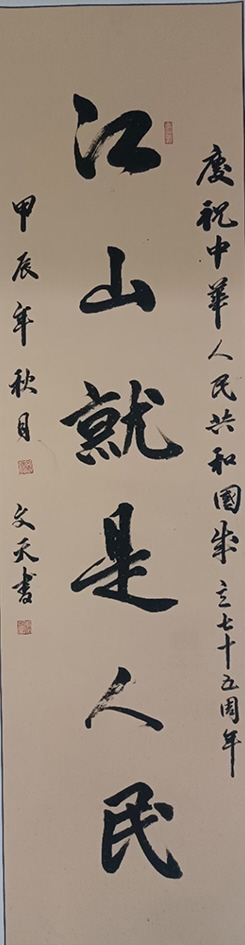 慶祝中華人民共和國成立七十五周年
江山就是人民
甲辰年秋月
文天書